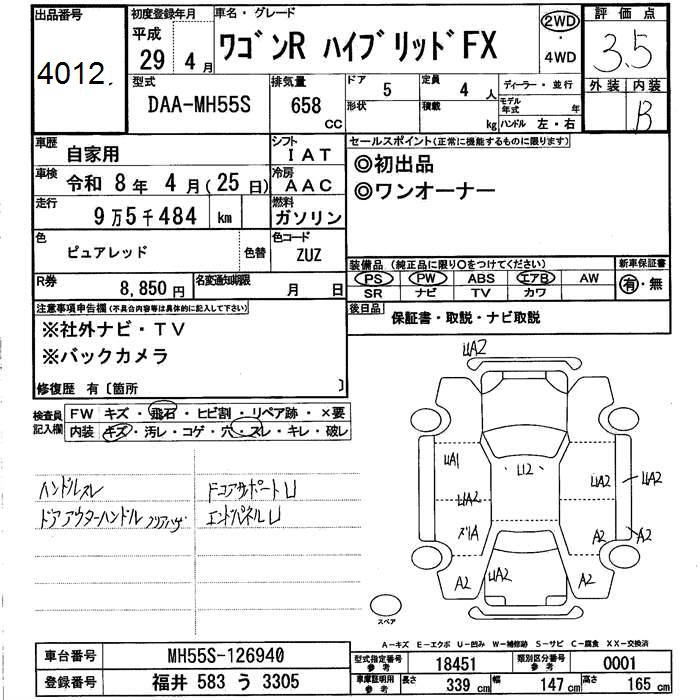 出品番号
4012.
初度登録年月
平成
29 4月
車名・グレード
ワゴンR ハイブリッドFX
2WD
・
4WD
評価点
3.5
外装 内装
B
型式
DAA-MH55S
排気量
658
CC
ドア
5
形状
定員
4 人
積載
kg
ディーラー・並行
モデル年式 年
ハンドル 左・右
車歴
自家用
シフト
IAT
車検
令和 8年 4月(25日)
冷房
AAC
走行
9万5千484 km
燃料
ガソリン
色
ピュアレッド
色替
色コード
ZUZ
R券
8,850円
名変通知期限
月 日
セールスポイント(正常に機能するものに限ります)
◎初出品
◎ワンオーナー
装備品(純正品に限り○をつけてください)
PS PW ABS エアB AW
SR ナビ TV カワ
新車保証書
有・無
後日品
保証書・取説・ナビ取説
注意事項申告欄(不具合内容等は具体的に記入して下さい)
※社外ナビ・TV
※バックカメラ
修復歴 有〔箇所 〕
検査員記入欄
FW キズ・飛石・ヒビ割・リペア跡・×要
内装 キズ・汚レ・コゲ・穴・スレ・キレ・破レ
ハンドルスレ
ドアアウターハンドルクリアハゲ
ドコアサポートU
エンドパネルU
UA2
UA1
U2
UA2
UA2
UA2
A2
A2
A2
UA2
A2
スペア
A-キズ E-エクボ U-凹み W-補修跡 S-サビ C-腐食 XX-交換済
車台番号
MH55S-126940
登録番号
福井 583 う 3305
型式指定番号
参考
18451
類別区分番号
参考
0001
車庫証明用
参考
長さ
339 cm
幅
147 cm
高さ
165 cm